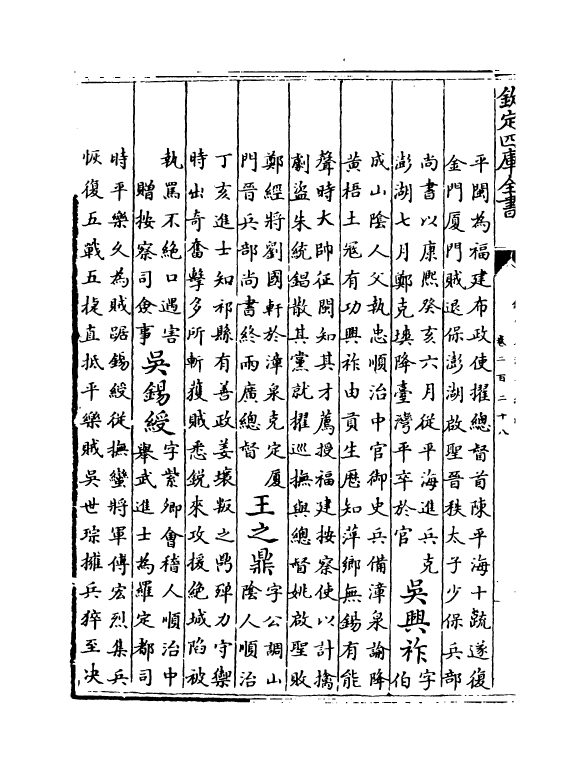 欽定四庫全書
卷二百二十八
平閩為福建布政使擢總督首陳平海十䟽遂復
金門厦門賊退保澎湖啟聖晉秩太子少保兵部
尚書以康熙癸亥六月從平海進兵克
澎湖七月鄭克塽降臺灣平卒於官
吳興祚
字
伯
成山陰人父執忠順治中官御史兵備漳泉論降
黃梧土冦有功興祚由貢生歷知萍鄉無錫有能
聲時大帥征閩知其才薦授福建按察使以計擒
劇盜朱統錩散其黨就擢巡撫與總督姚啟聖敗
鄭經將劉國軒於漳泉克定厦
門晉兵部尚書終兩廣總督
王之鼎
字公調山
陰人順治
丁亥進士知祁縣有善政姜壤叛之鼎殫力守禦
時出奇奮擊多所斬獲賊悉銳來攻援絕城陷被
執罵不絕口遇害
贈按察司僉事
吳錫綬
字紫卿會稽人順治中
舉武進士為羅定都司
時平樂久為賊踞錫綬從撫蠻將軍傅宏烈集兵
恢復五戰五㨗直抵平樂賊吳世琮擁兵猝至决